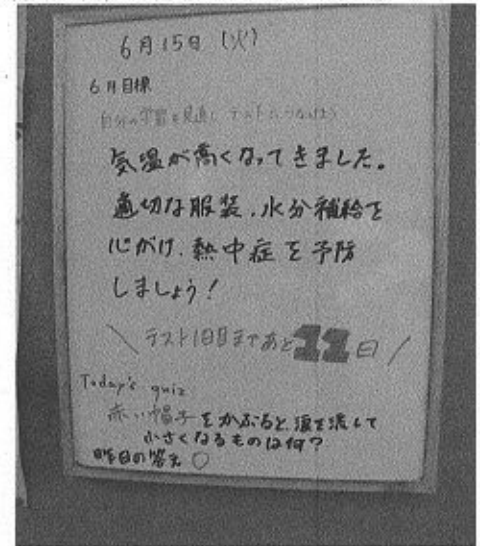 6月15日（火）
6月目標
自分の学習を見直し テストにつなげよう
気温が高くなってきました。
適切な服装、水分補給を
心がけ、熱中症を予防
しましょう！
＼テスト1日目まであと11日／
Today's quiz
赤い帽子をかぶると、涙を流して
小さくなるものは何？
昨日の答え ○